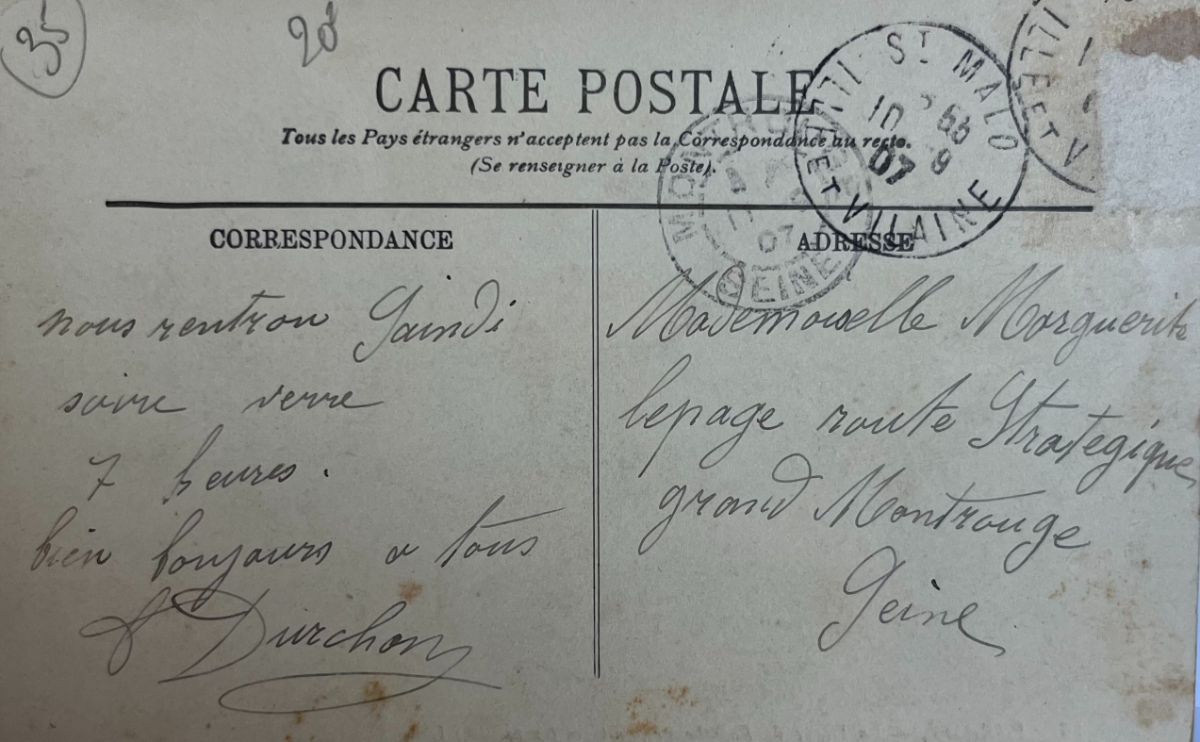 35
20
CARTE POSTALE
Tous les Pays étrangers n'acceptent pas la Correspondance au recto.
(Se renseigner à la Poste).
ST MALO
10 55
07 9
ILLE ET VILAINE
ILLE ET V
MONTROUGE
07
SEINE
CORRESPONDANCE
nous rentron Samdi
soire verre
7 heures.
bien bonjours a tous
Durchon
ADRESSE
Mademoiselle Marguerite
lepage route Strategique
grand Montrouge
Seine